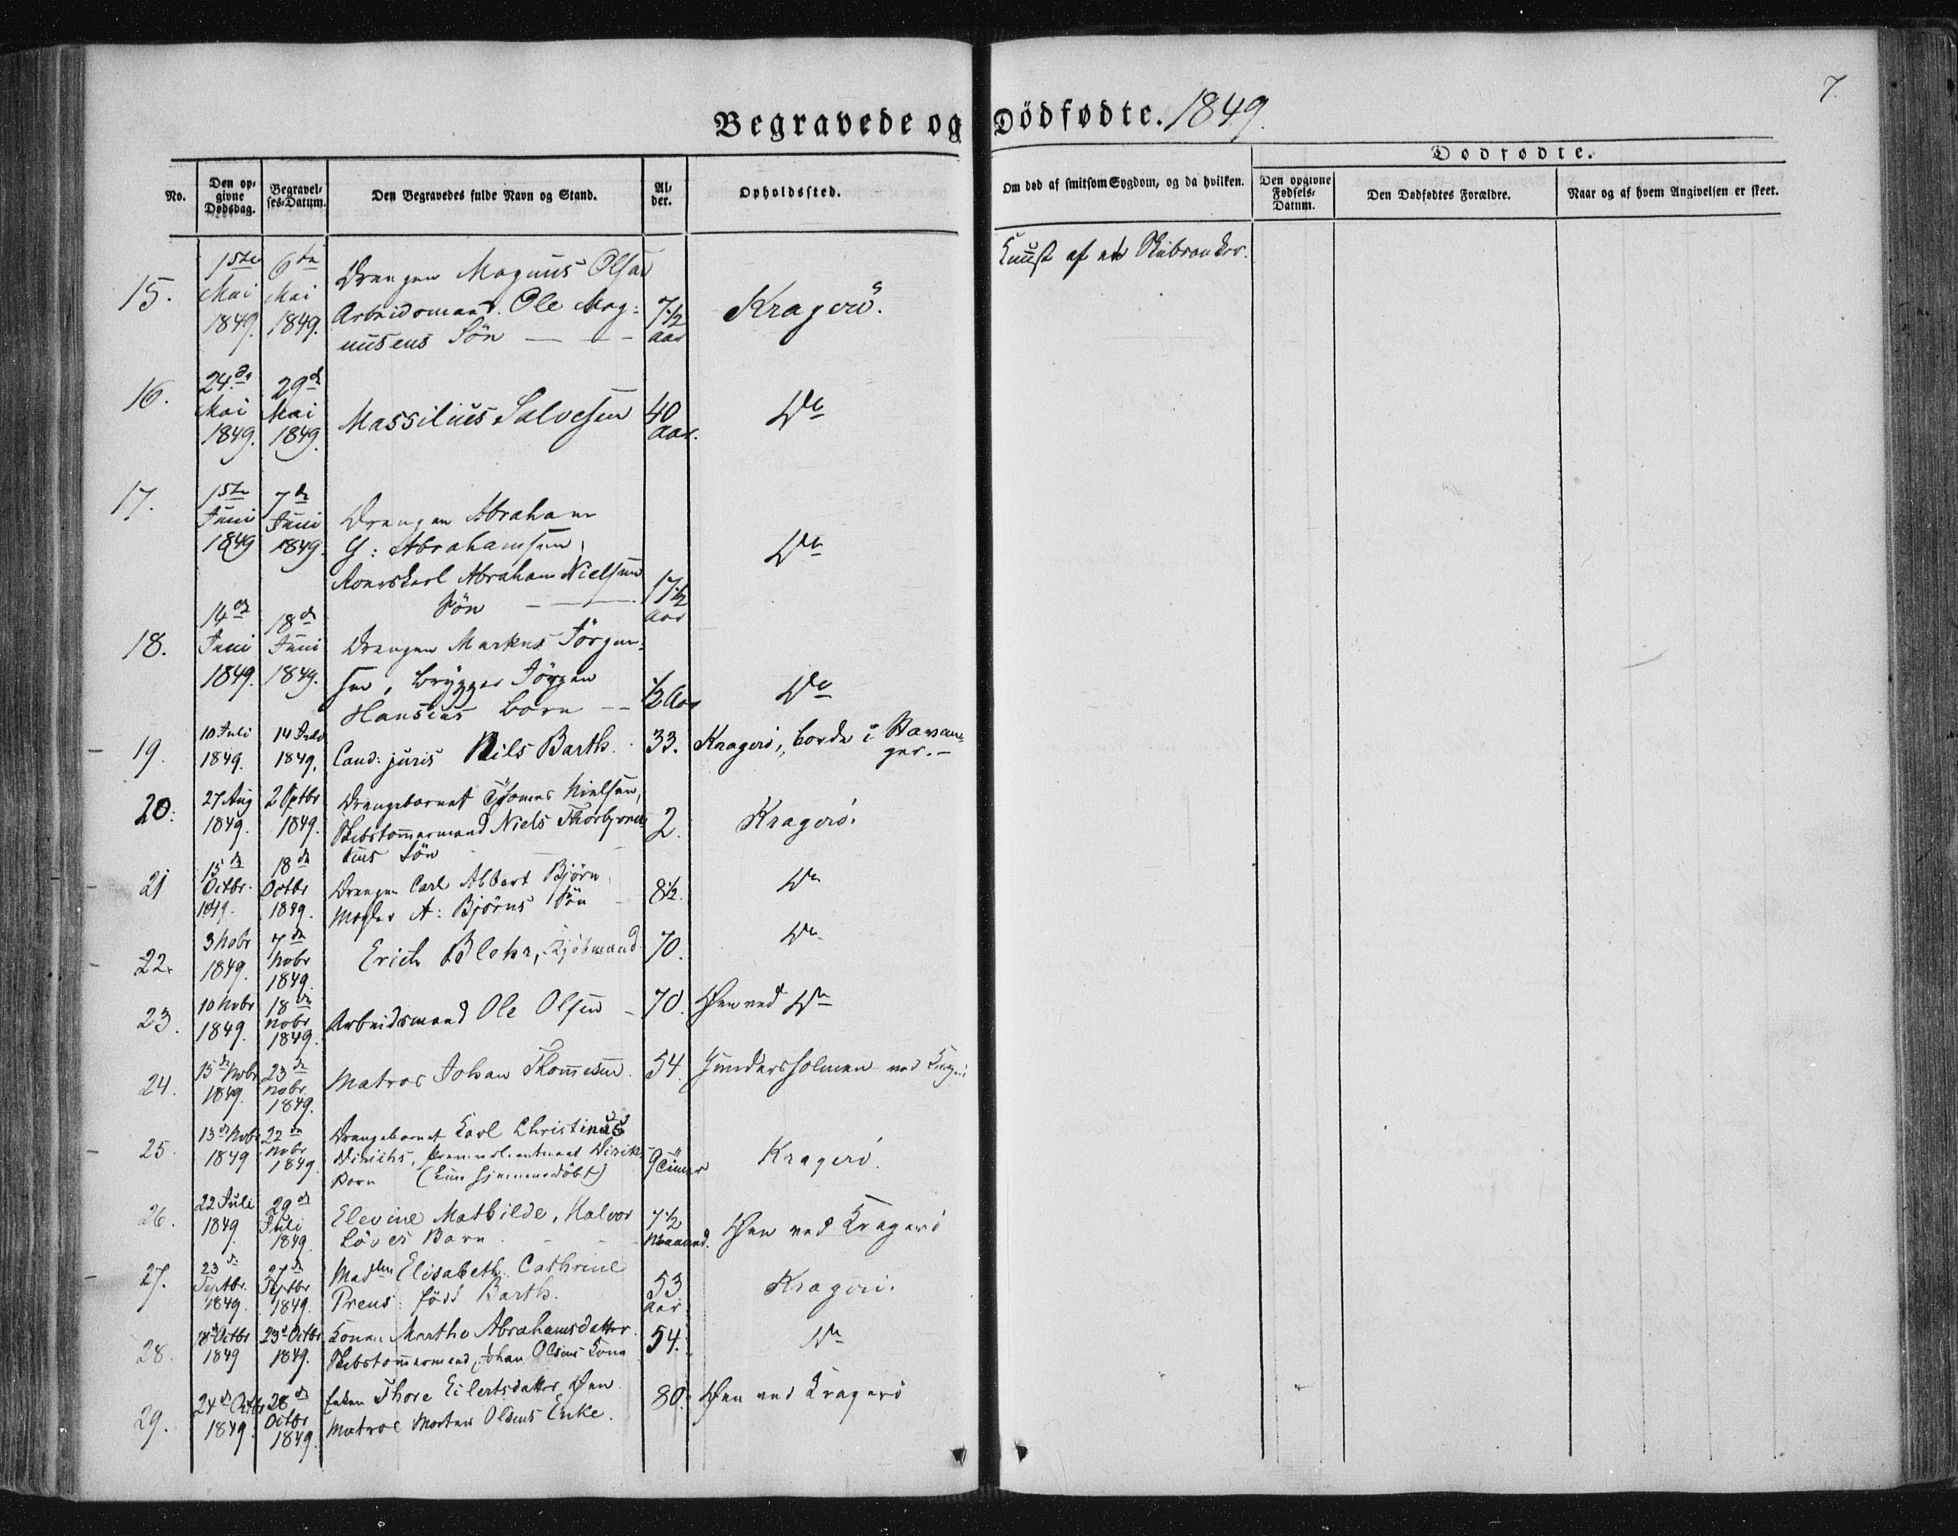 7.
Begravede og Dödfødte. 1849.
No.
Den opgivne Dødsdag.
Begravelses-Datum.
Den Begravedes fulde Navn og Stand.
Alder.
Opholdssted.
Om død af smitsom Sygdom, og da hvilken.
Dødfødte.
Den opgivne Fødsels-Datum.
Den Dødfødtes Forældre.
Naar og af hvem Angivelsen er skeet.
15.
1ste Mai 1849.
6te Mai 1849.
Drengen Magnus Olsen
Arbeidsmand Ole Mag-
nusens Sön
7 1/2 Aar
Kragerö.
16.
24de Mai 1849.
29de Mai 1849
Massilius Salvesen
40 Aar.
Do
17.
1ste Juni 1849
7de Juni 1849.
Drengen Abraham
G: Abrahamsen,
Abraham Nielsens
Sön
17 1/2 Aar
Do
18.
14de Juni 1849.
18de Juni 1849.
Drengen Markus Jörgen-
sen, Brygger Jörgen
Hansens Barn
1/2 Aar
Do
19.
10 Juli 1849.
14 Juli 1849.
Cand: juris Nils Barth.
33.
Kragerö, borde i Stavan-
ger.
20.
27 Aug 1849.
2 Sptbr 1849.
Drengebarnet Thomas Nielsen,
Skibstømmermand Niels Thorbjørn-
sens Sön
2.
Kragerö.
21
15de Octbr. 1849.
18de Octbr 1849.
Drengen Carl Albert Björn,
Mægler A: Björns Sön
8 1/2.
Do
22.
3 Nobr 1849.
7de Nobr 1849.
Erich Blehr, Kjøbmand
70.
Do
23.
10 Nobr 1849.
18de Nobr 1849.
Arbeidsmand Ole Olsen
70.
Øen ved Do
24.
15de Nobr 1849.
23de Nobr 1849.
Matros Johan Thommesen.
54.
Gundersholmen ved Kragerö
25.
13de Nobr 1849
22de Nobr 1849.
Drengebarnet Carl Christinus
Diriks, Premierlieutnant Diriks
Barn (kun hjemmedöbt)
9 Timer
Kragerö.
26.
22 Juli 1849.
29de Juli 1849.
Elevine Mathilde, Halvor
Lövs Barn.
7 1/2 Maaned.
Øen ved Kragerö
27.
23de Septbr. 1849.
27de Septbr 1849.
Madm Elisabeth Cathrine
Preus: född Barth.
53 Aar
Kragerö.
28.
18de Octbr 1849
23de Octbr 1849.
Konen Marthe Abrahamsdatter
Skibstømmermand Johan Olsens Kone
54.
Do
29.
24de Octbr 1849.
28de Octbr 1849.
Enken Thore Eilertsdatter Øen
Matros Morten Olsens Enke.
80.
Øen ved Kragerö